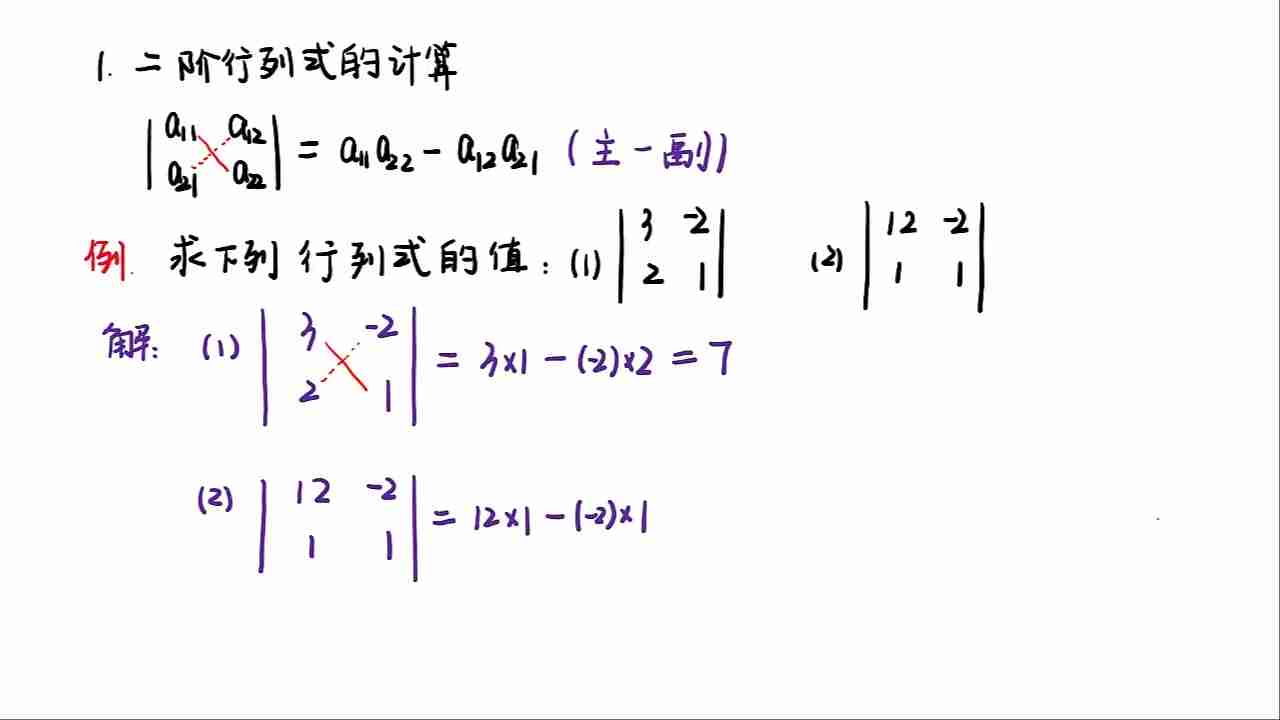 1. 二阶行列式的计算
|a₁₁ a₁₂|
|a₂₁ a₂₂| = a₁₁a₂₂ - a₁₂a₂₁ (主-副)
例. 求下列行列式的值: (1) |3 -2| (2) |12 -2|
|2 1| |1 1|
解: (1) |3 -2|
|2 1| = 3×1-(-2)×2 = 7
(2) |12 -2|
|1 1| = 12×1-(-2)×1